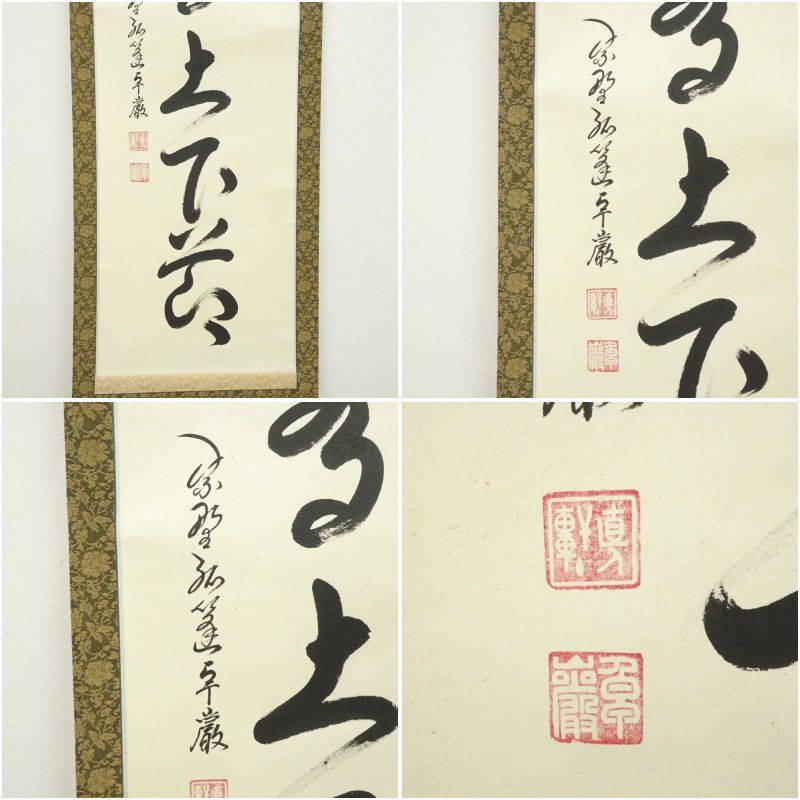 上下節
野孤篷卓巖
上下
紫野孤篷卓巖
有上
紫野孤篷卓巖
卓巖